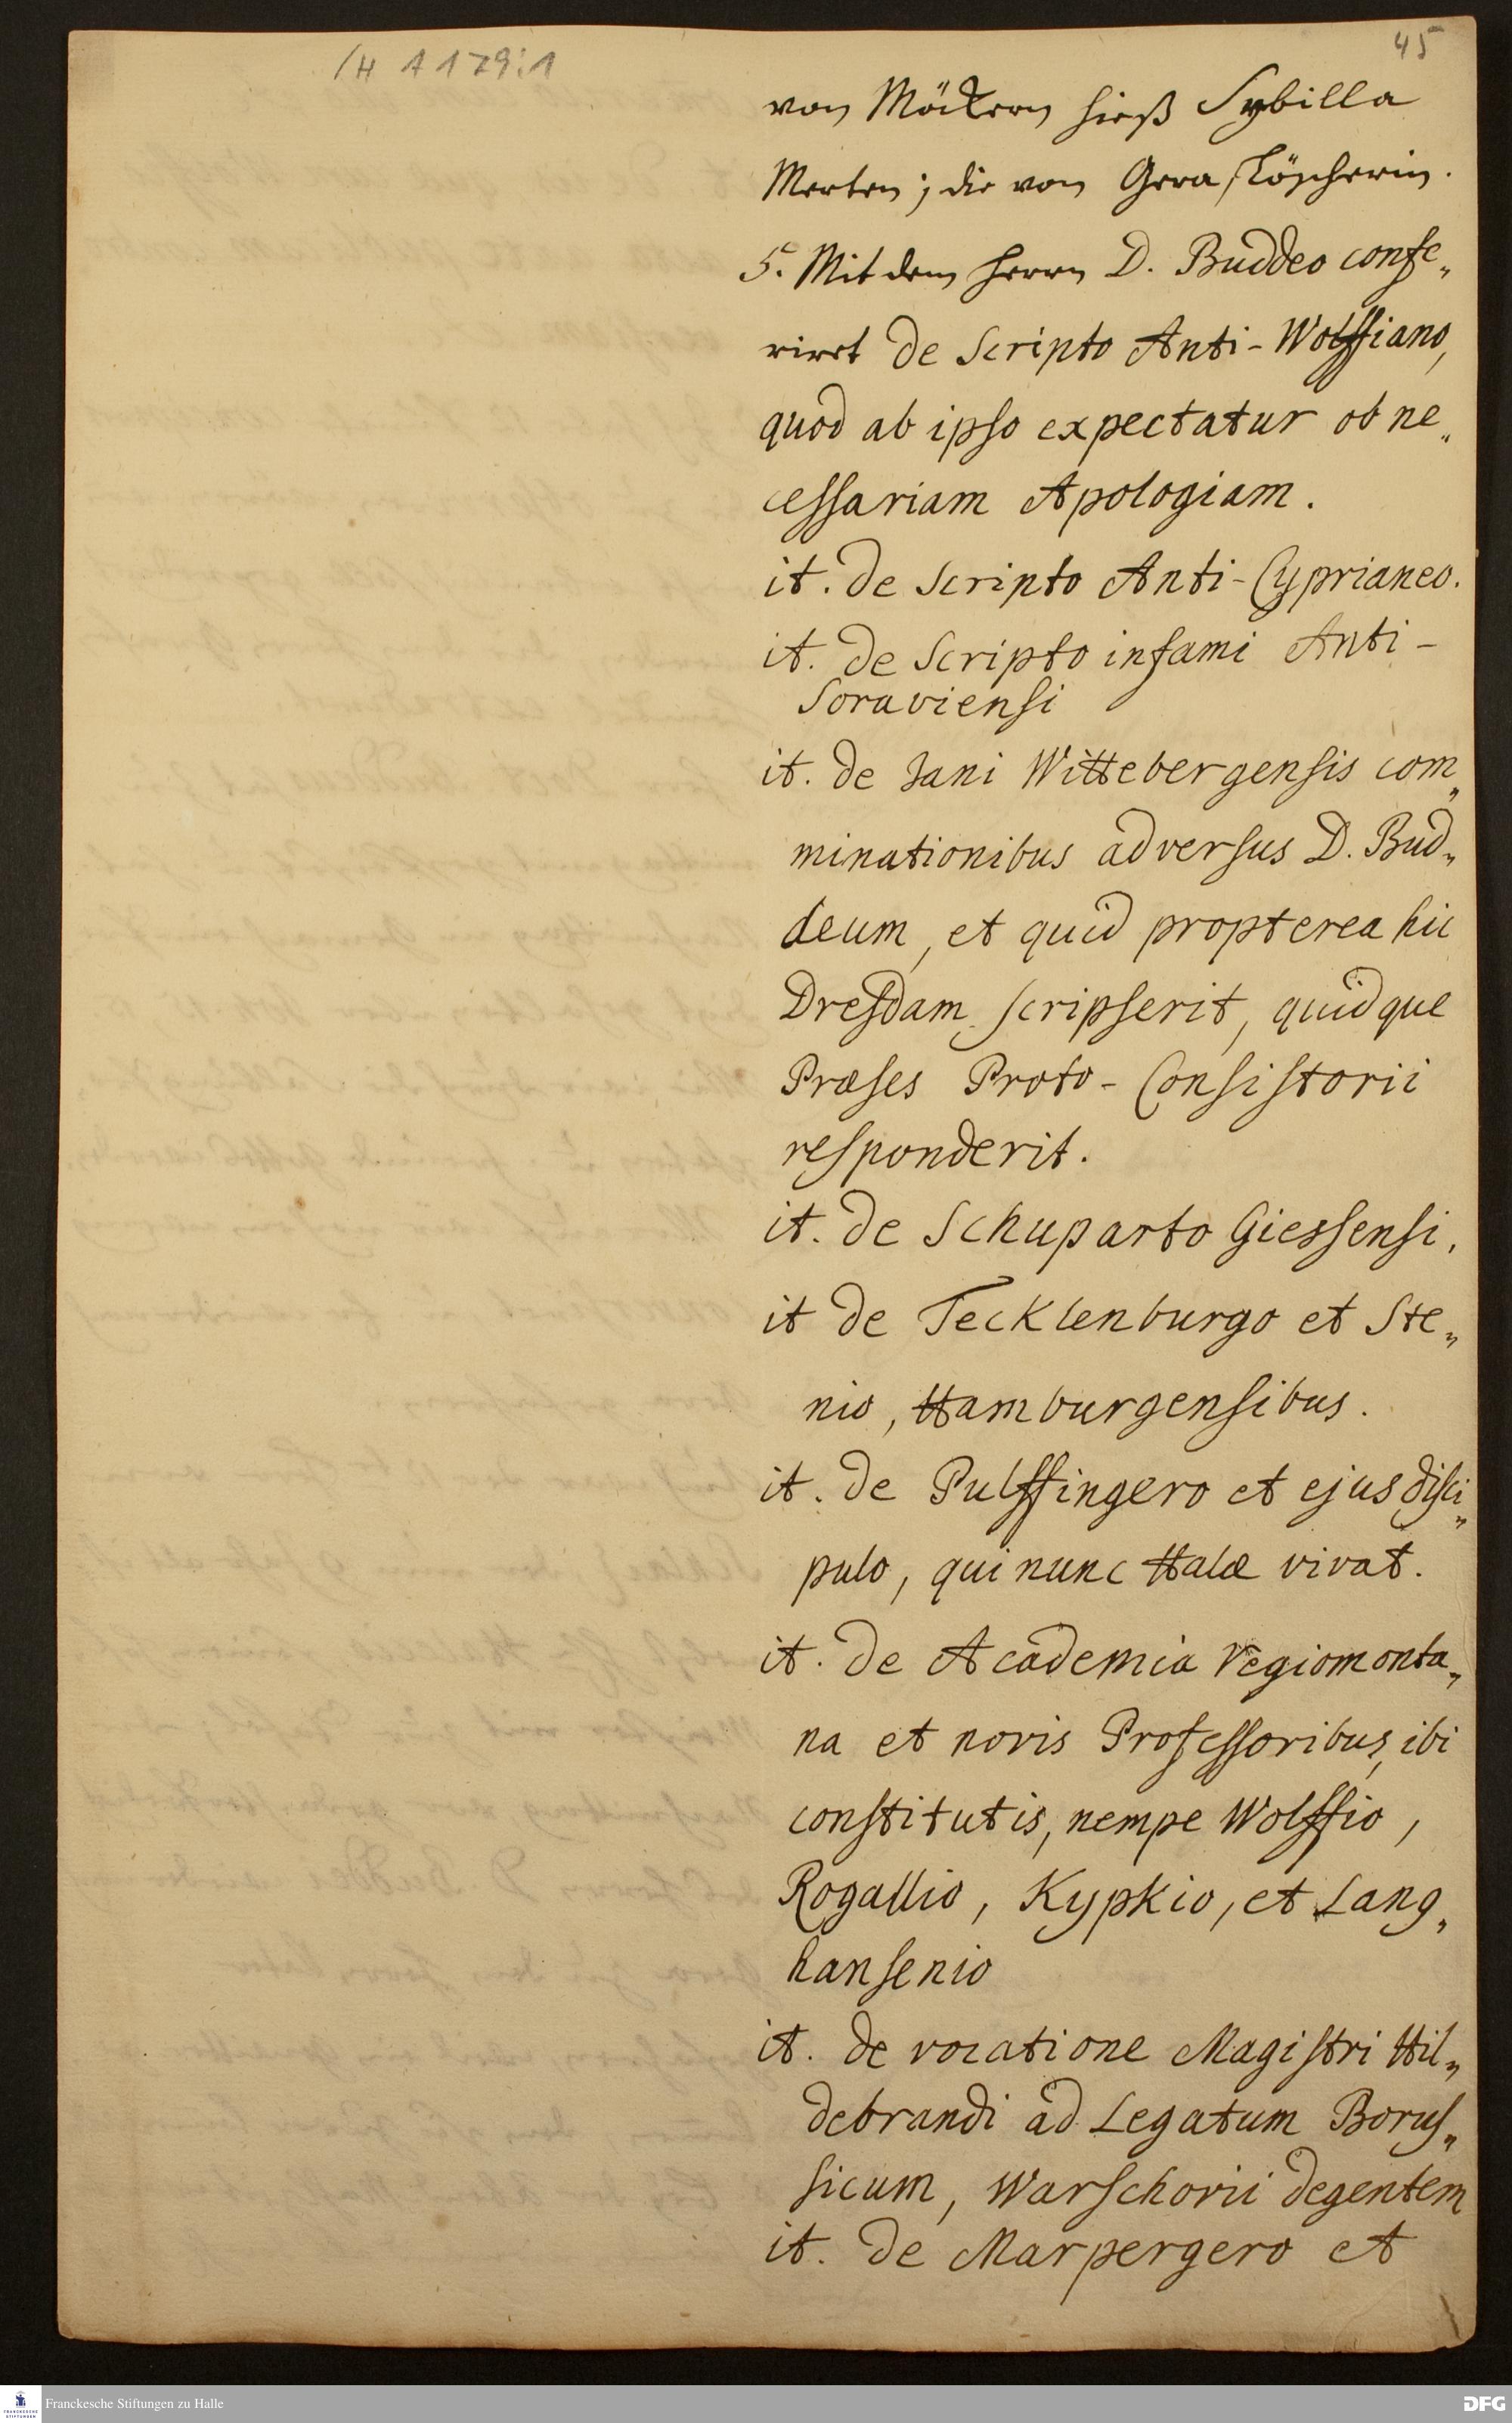 45
/H A 179:1
von Möckern hieß Sybilla
Merten; die von Gera, Löscherin.
5. Mit dem Herrn D. Buddeo confe„
rirt de scripto Anti-Wolffiano,
quod ab ipso expectatur ob ne„
cessariam Apologiam.
it. de scripto Anti-Cyprianeo.
it. de scripto infami Anti-
Soraviensi
it. de Jani Wittebergensis com„
minationibus adversus D. Bud„
deum, et quid propterea hic
Dresdam scripserit, quidque
Præses Proto-Consistorii
responderit.
it. de Schuparto Giessensi,
it de Tecklenburgo et Ste„
nio, Hamburgensibus.
it. de Pulffingero et ejus disci„
pulo, qui nunc Halæ vivat.
it. de Academia regiomonta„
na et novis Professoribus, ibi
constitutis, nempe Wolffio,
Rogallio, Kypkio, et Lang„
hansenio
it. de vocatione Magistri Hil„
debrandi ad Legatum Borus„
sicum, Warschovii degentem
it. de Marpergero et
Franckesche Stiftungen zu Halle
DFG